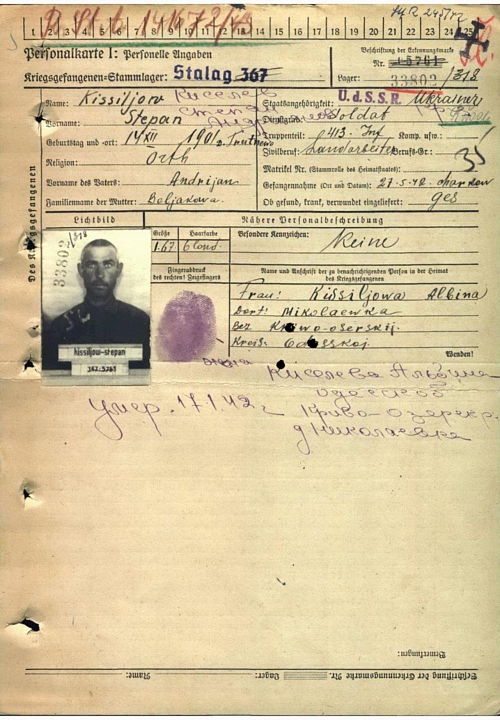 1 2 3 4 5 6 7 8 9 10 11 12 13 14 15 16 17 18 19 20 21 22 23 24 25
Personalkarte I: Personelle Angaben
Kriegsgefangenen-Stammlager: Stalag 367
Beschriftung der Erkennungsmarke
Nr. 5761
Lager: 33802/318
Des Kriegsgefangenen
Name: Kissiljow
Киселев
Vorname: Stepan
Степан
Geburtstag und -ort: 14 XII 1901
Religion: Orth
Vorname des Vaters: Andrijan
Familienname der Mutter: Boljakowa
Staatsangehörigkeit: U.d.S.S.R. Ukrainer
Dienstgrad: Soldat
Truppenteil: 413. Inf Komp. usw.:
Zivilberuf: Landarbeiter Berufs-Gr.:
Matrikel Nr. (Stammrolle des Heimatstaates):
35
Gefangennahme (Ort und Datum): 27-5.42 charkow
Ob gesund, krank, verwundet eingeliefert: ges
Lichtbild
Nähere Personalbeschreibung
Größe Haarfarbe
1.67 blond
Besondere Kennzeichen:
Keine
Fingerabdruck
des rechten! Zeigefingers
Name und Anschrift der zu benachrichtigenden Person in der Heimat
des Kriegsgefangenen
33802/318
kissiljow-stepan
367.5761
Frau: Kissiljowa Albina
Dorf: Mikolaewka
Bez Kriwo-oserskij
Kreis Odesskoj
Wenden!
жена Киселева Альбина
Одесской
Криво-Озерск. р.
д Николаевка
Умер. 17.1.42 г
Bemerkungen:
Beschriftung der Erkennungsmarke Nr. Lager: Name: